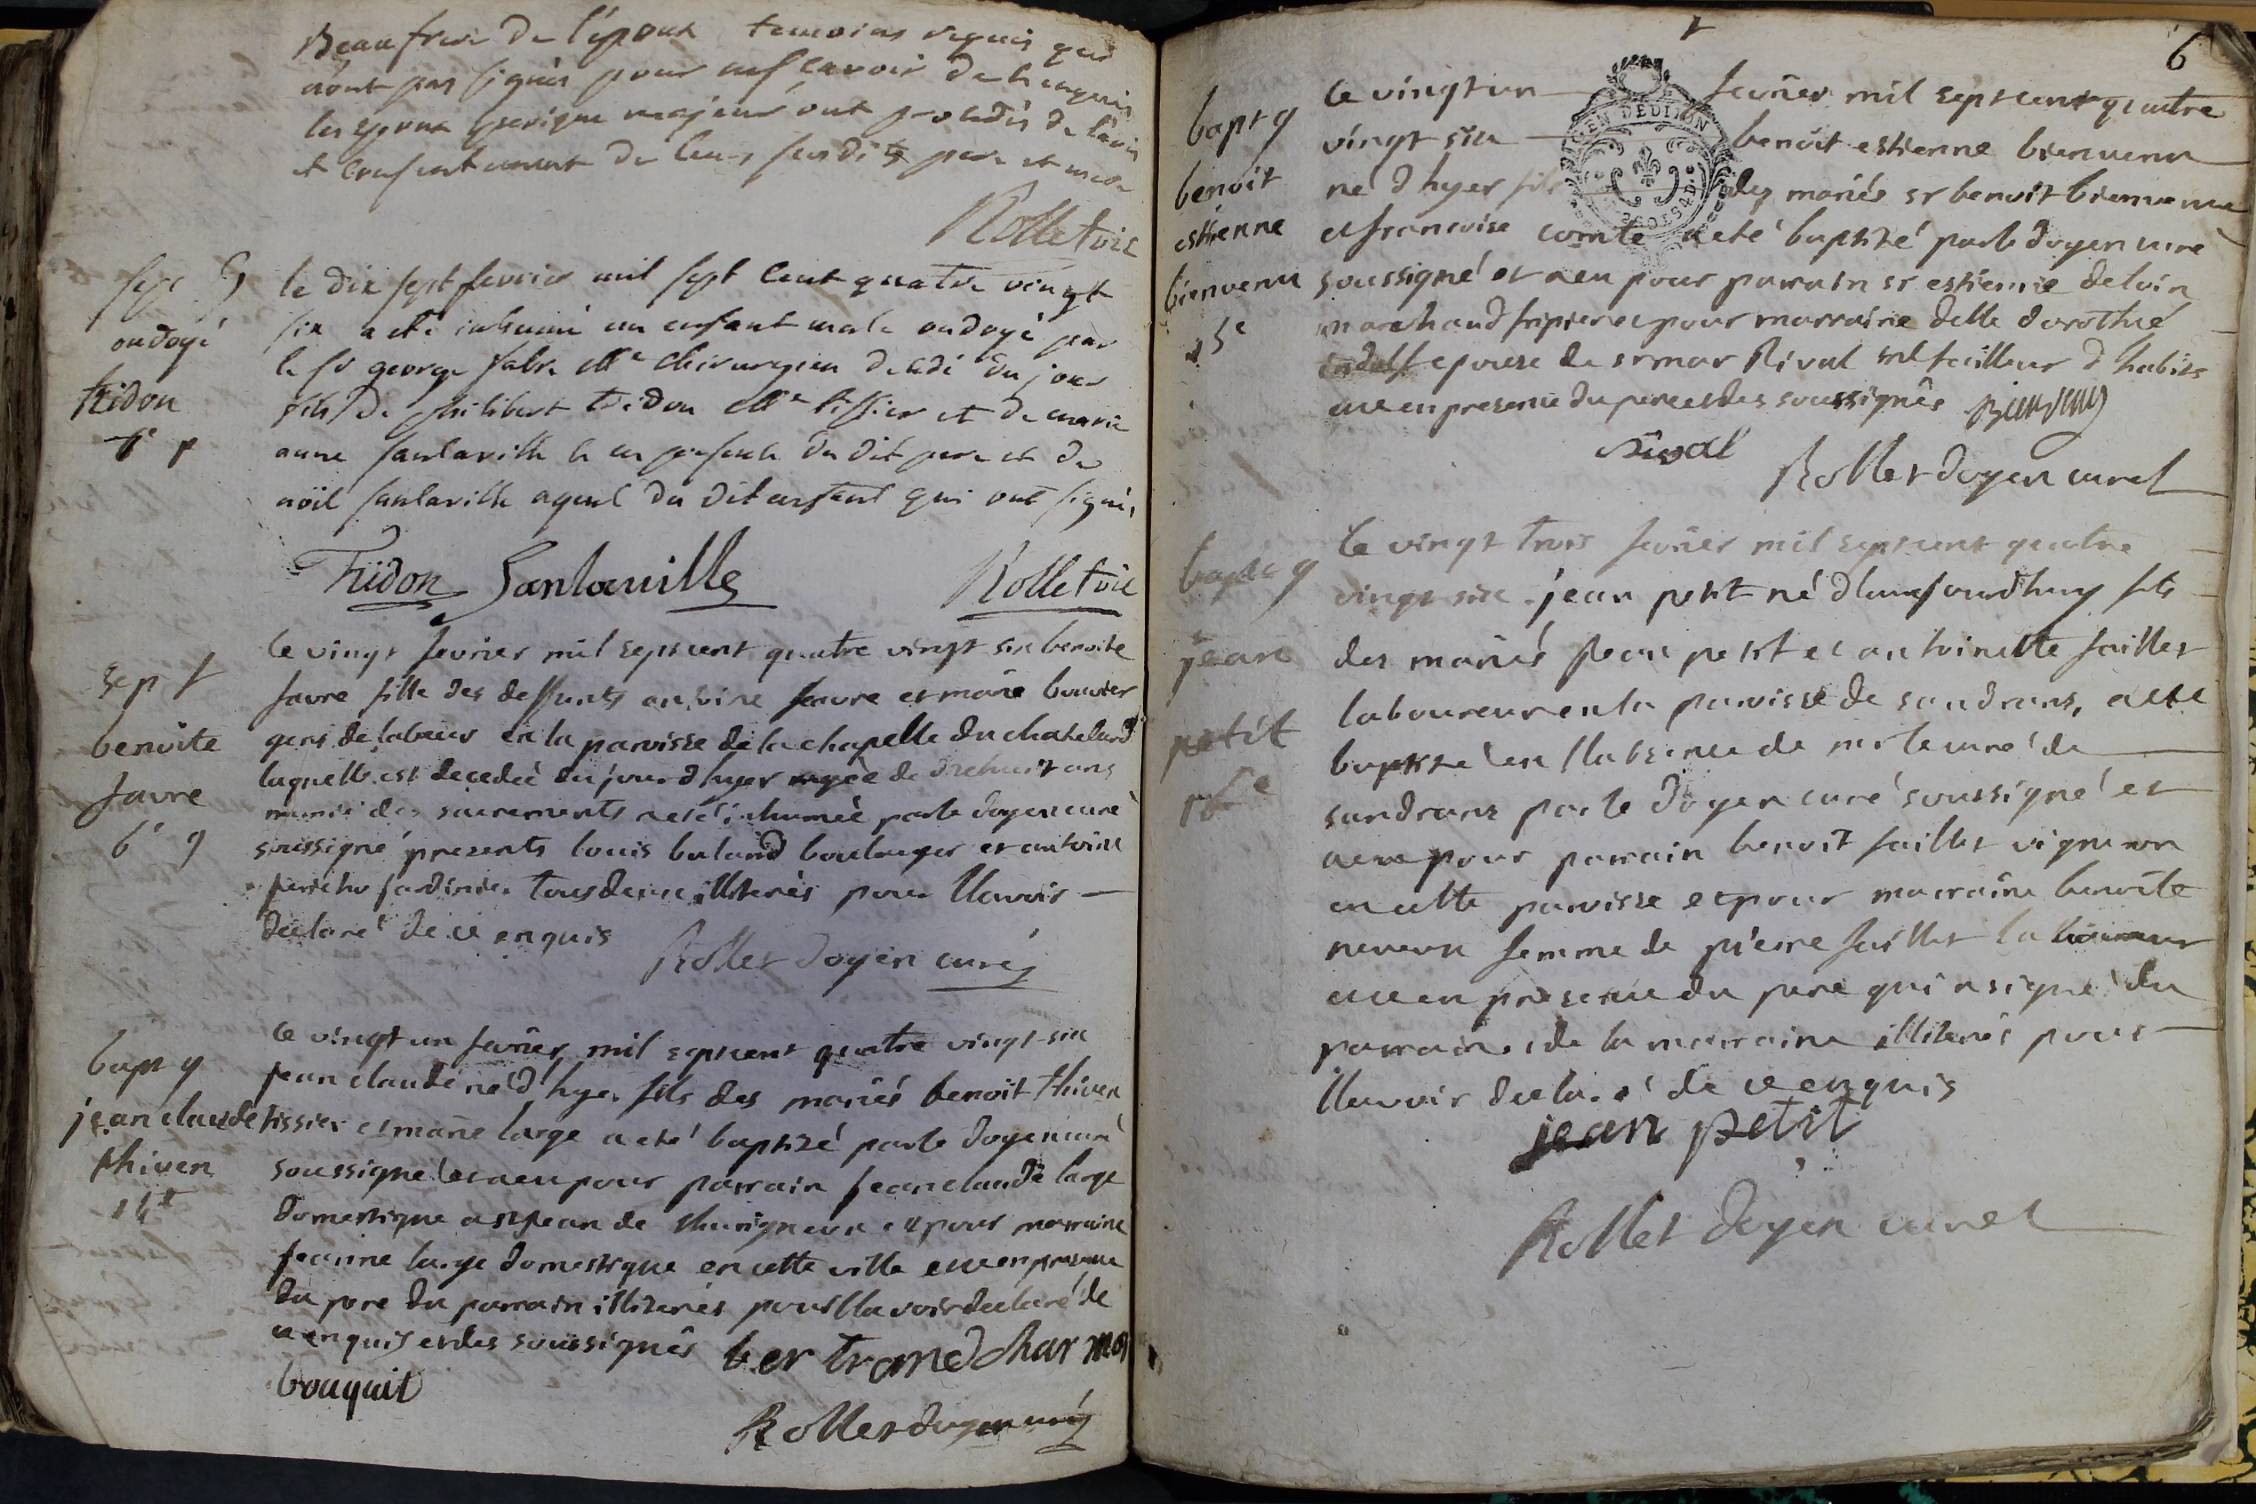 Beaufrere de l'époux temoins requis qui
n'ont pas signés pour ne sçavoir de ce enquis
les epoux quoique majeurs ont procedés de l'avis
et consentement de leurs susdits pere et mere
Rollet vic
sep g
ondoyé
tridon
6e
le dix sept fevrier mil sept cent quatre vingt
six a été inhumé un enfant male ondoyé par
le sr george fabre me chirurgien decedé du jour
fils de philibert tridon me tissier et de marie
anne santaville en presence du dit pere et de
noël santaville ayeul du dit enfant qui ont signés
Tridon Santaville Rollet vic
sep f
benoite
favre
6e
le vingt fevrier mil sept cent quatre vingt six benoite
favre fille des deffunts antoine favre et marie bouvier
gens de labeur en la paroisse de la chapelle du chatelard
laquelle est decedeé du jour d'hyer ageé de dixhuit ans
munie des sacrements a eté inhumeé par le doyen curé
soussigné presents louis buland boulanger et antoine
jardinier tous deux illiterés pour l'avoir
declaré de ce enquis Rollet doyen curé
bapt g
jean claude
thiven
14e
le vingt un fevrier mil sept cent quatre vingt six
jean claude né d'hyer fils des mariés benoit thiven
tissier et marie large a eté baptizé par le doyen curé
soussigné et a eu pour parrain jean claude large
domestique a st jean de thurigneux et pour marraine
jeanne large domestique en cette ville et ce en presence
du pere du parrain illiterés pour l'avoir declaré de
ce enquis et des soussignés bertrand charmo
bouquet
Rollet doyen curé
6
bapt g
benoit
estienne
bienvenu
15e
le vingt un fevrier mil sept cent quatre
vingt six benoit estienne bienvenu
né d'hyer fils des mariés sr benoit bienvenu
et francoise comte a eté baptizé par le doyen curé
soussigné et a eu pour parrain sr estienne deloin
marchand fripier et pour marraine delle dorothée
epouse de sr mar Rival tailleur d'habits
et ce en presence du pere et des soussignés Bienvenu
Rival
Rollet doyen curé
GEN DE DIJON
bapt g
jean
petit
16e
le vingt trois fevrier mil sept cent quatre
vingt six jean petit né d'aujourd'huy fils
des mariés jean petit et antoinette faillet
laboureur en la paroisse de sandrans, a eté
baptizé en l'absence de mr le curé de
sandrans par le doyen curé soussigné et
a eu pour parrain benoit faillet vigneron
en cette paroisse et pour marraine benoite
neveu femme de pierre faillet laboureur
et ce en presence du pere qui a signé du
parrain et de la marraine illiterés pour
l'avoir declaré de ce enquis
jean petit
Rollet doyen curé